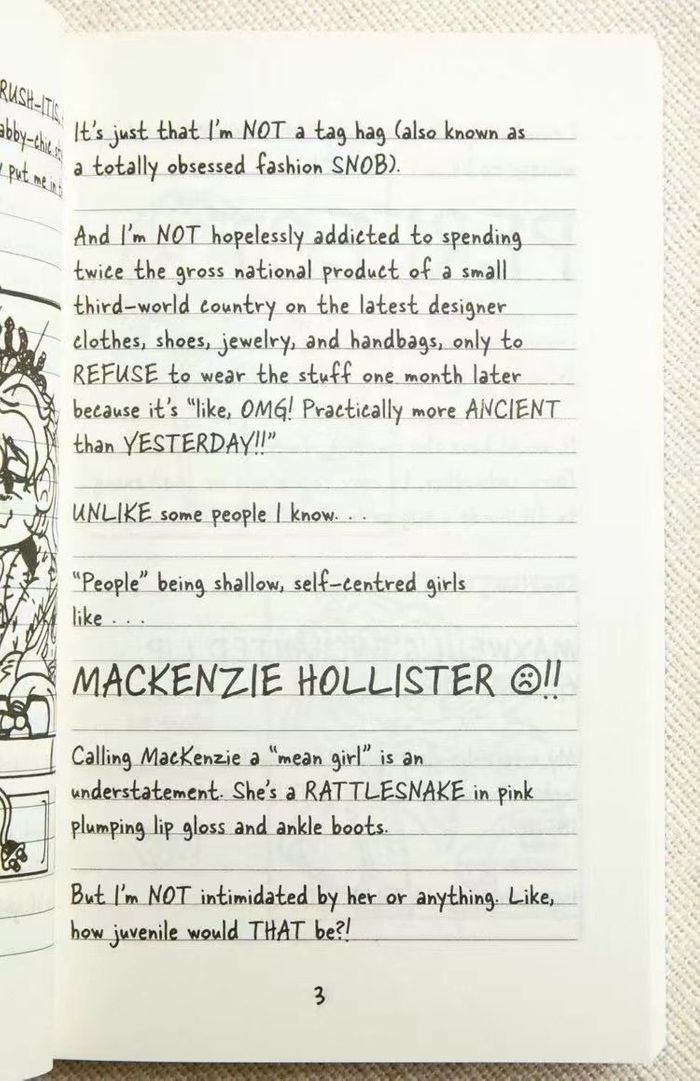 RUSH-ITIS,
abby-chic
put me in
It's just that I'm NOT a tag hag (also known as
a totally obsessed fashion SNOB).
And I'm NOT hopelessly addicted to spending
twice the gross national product of a small
third-world country on the latest designer
clothes, shoes, jewelry, and handbags, only to
REFUSE to wear the stuff one month later
because it's "like, OMG! Practically more ANCIENT
than YESTERDAY!!"
UNLIKE some people I know. . .
"People" being shallow, self-centred girls
like . . .
MACKENZIE HOLLISTER ☹!!
Calling MacKenzie a "mean girl" is an
understatement. She's a RATTLESNAKE in pink
plumping lip gloss and ankle boots.
But I'm NOT intimidated by her or anything. Like,
how juvenile would THAT be?!
3